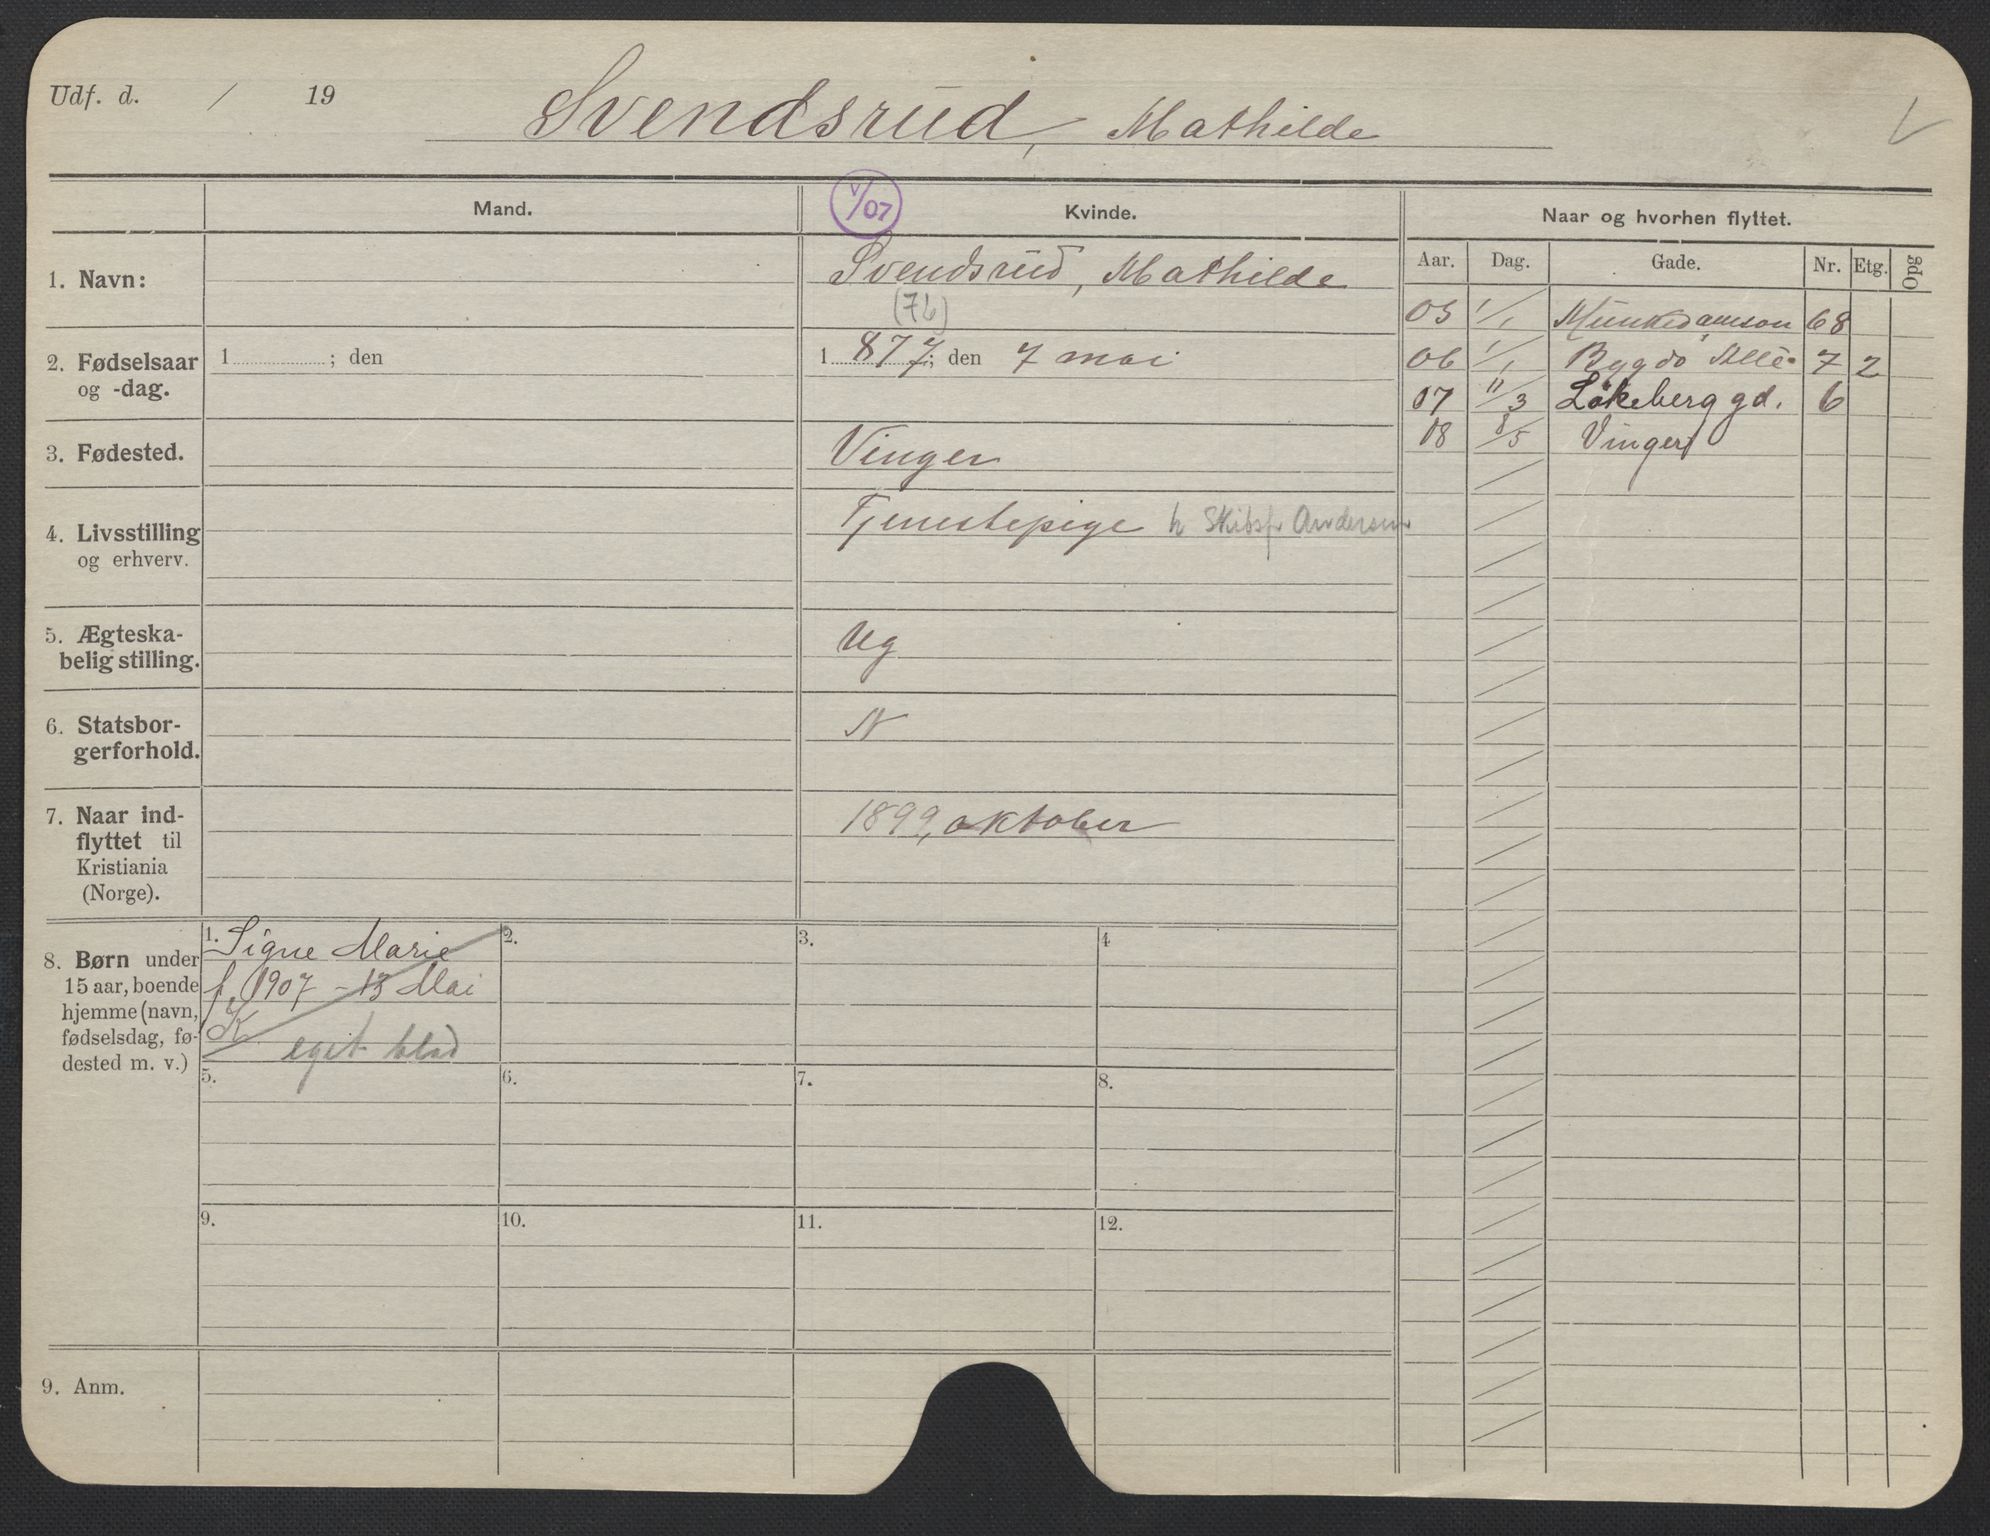 Udf. d. / 19
Svendsrud, Mathilde
V/07
Mand.
Kvinde.
Naar og hvorhen flyttet.
Aar. Dag. Gade. Nr. Etg. Opg
1. Navn:
Svendsrud, Mathilde
(76)
2. Fødselsaar
og -dag.
1 ; den
1 877; den 7 mai
3. Fødested.
Vinger
4. Livsstilling
og erhverv.
Tjenestepige h Skibsf Andersen
5. Ægteska-
belig stilling.
Ug
6. Statsbor-
gerforhold.
N
7. Naar ind-
flyttet til
Kristiania
(Norge).
1899, oktober
05 1/1 Munkedamson 68
06 1/1 Bygdø Alle 7 2
07 11/3 Løkeberg gd. 6
08 8/5 Vinger
8. Børn under
15 aar, boende
hjemme (navn,
fødselsdag, fø-
dested m. v.)
1. Signe Marie
f. 1907 - 13 Mai
K
eget blad
2.
3.
4
5.
6.
7.
8.
9.
10.
11.
12.
9. Anm.